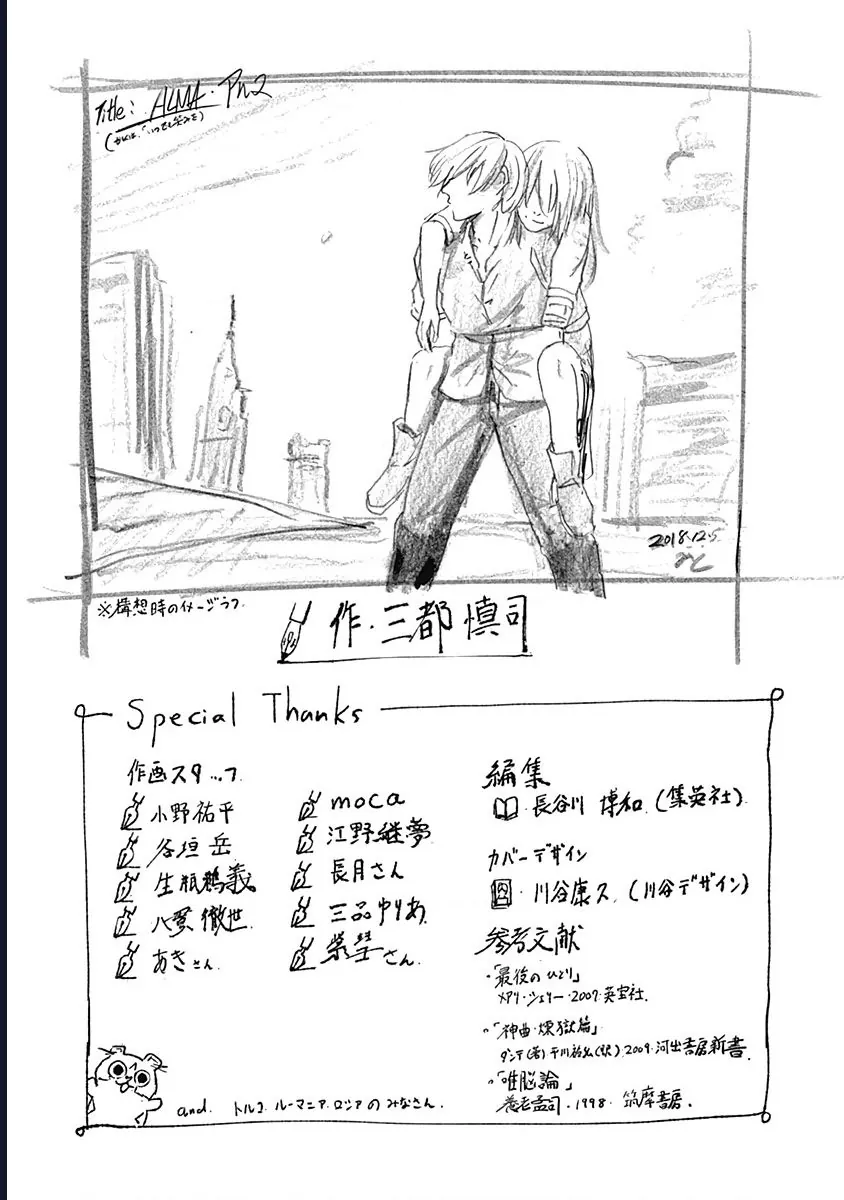 Title: ALMA.
2018.12.5
※構想時のイメージラフ
作・三都慎司
Special Thanks
作画スタッフ
小野祐平
谷垣岳
生瓶鵜義
八翼徹世
あきさん
moca
江野継夢
長月さん
三品ゆりあ
さん
編集
長谷川博和(集英社)
カバーデザイン
川谷康久(川谷デザイン)
参考文献
・「最後のひとり」
メアリ・シェリー・2007・英宝社.
・「神曲・煉獄篇」
ダンテ(著)平川祐弘(訳)・2009・河出書房新書.
・「唯脳論」
養老孟司・1998・筑摩書房.
and. トルコ.ルーマニア.ロシアのみなさん.